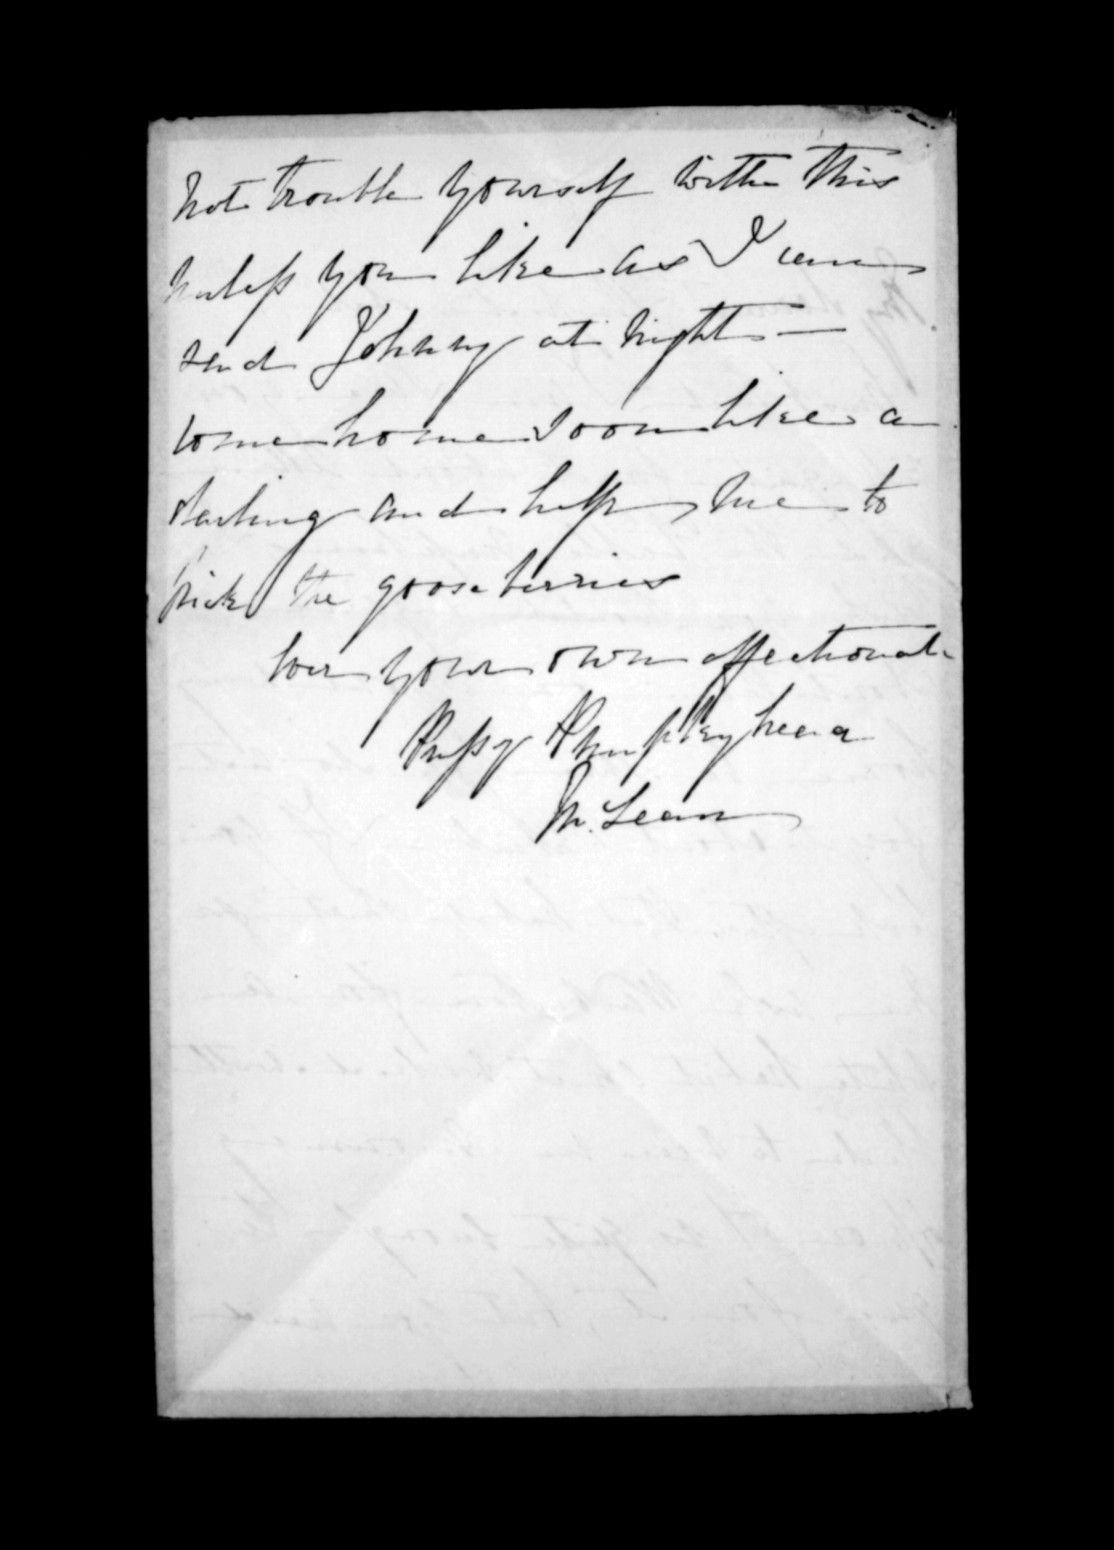 not trouble yourself with this
unless you like as I can
send Johnny at night —
come home soon like a
darling and help me to
pick the gooseberries
Ever your own affectionate
Pussy
McLean